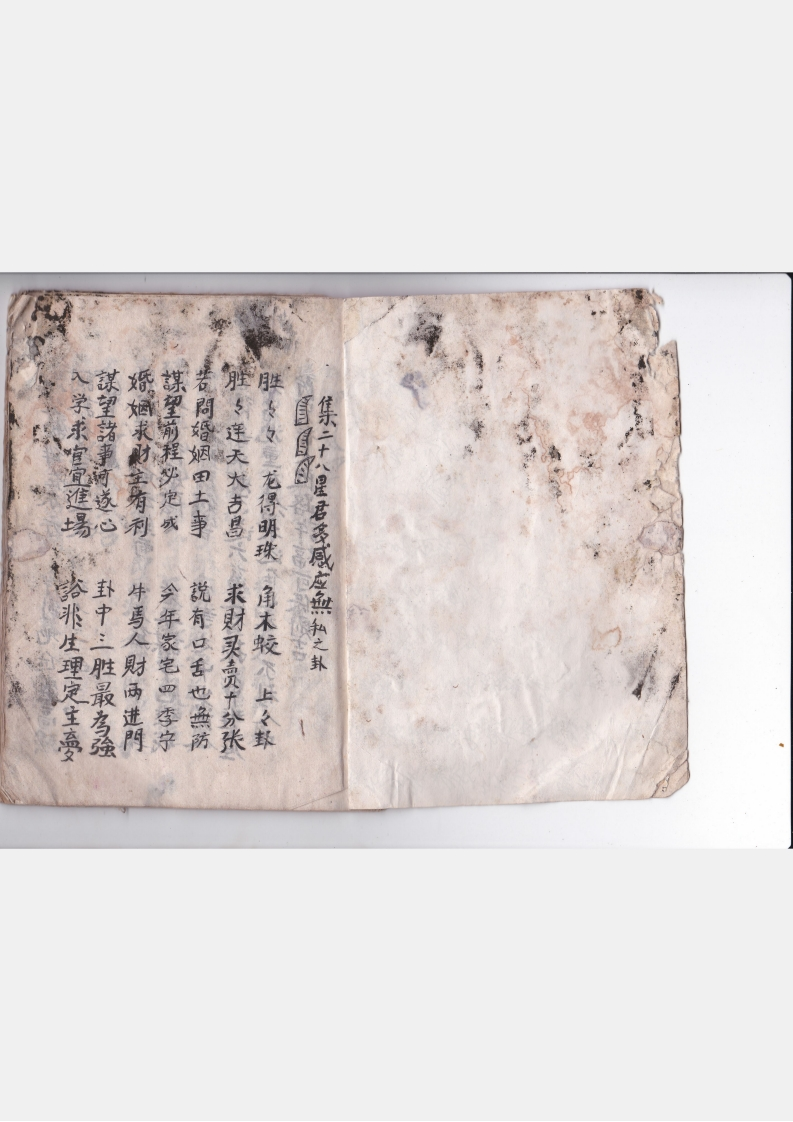 集二十八星君多感应無私之卦
胜々々 龙得明珠 角木蛟 上々卦
胜々連天大吉昌 求財买賣十分张
若問婚姻田土事 説有口舌也無防
謀望前程必定成 今年家宅四季宁
婚姻求財主有利 牛馬人財两进門
謀望諸事可遂心 卦中三胜最為強
入学求宜進場 非生理定主憂